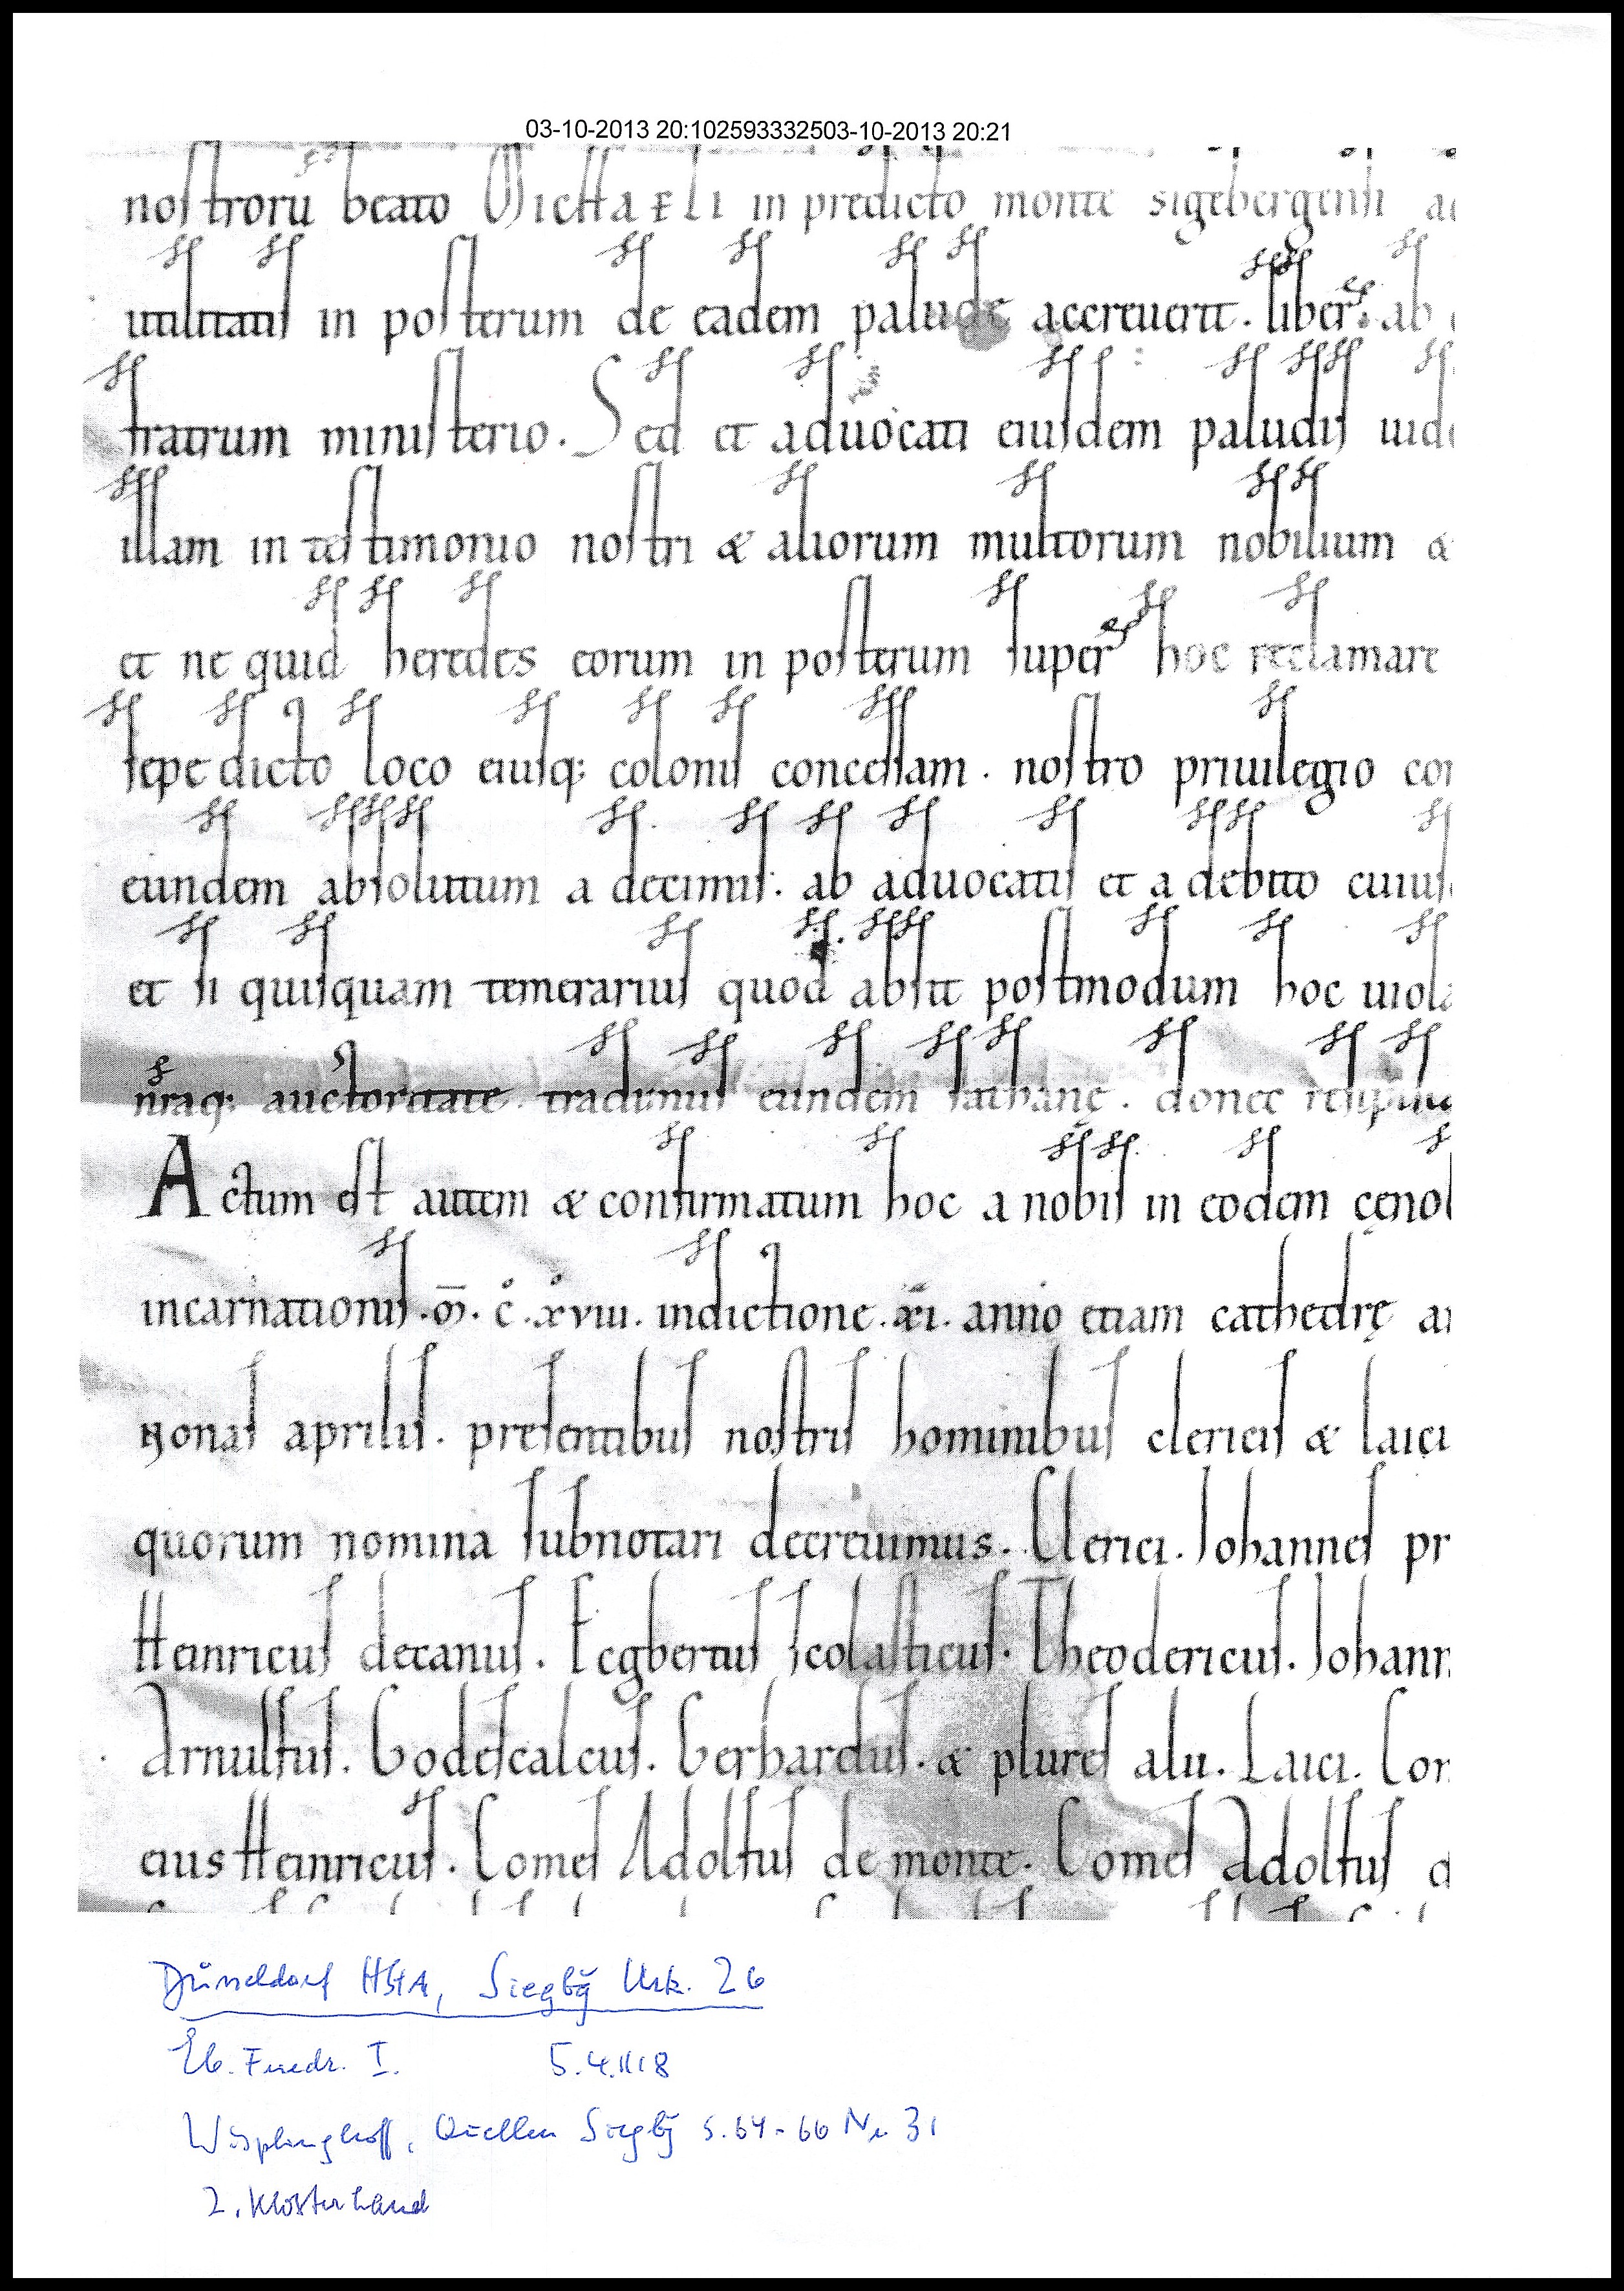 03-10-2013 20:102593332503-10-2013 20:21
nostrorū beato MICHAELI in predicto monte sigebergensi
utilitatis in posterum de eadem palude accreuerit. liber ab
fratrum ministerio. Sed et aduocati eiusdem paludis uid
illam in testimonio nostri & aliorum multorum nobilium &
et ne quid heredes eorum in posterum super hoc reclamare
sepe dicto loco eiusq; colonis concessam. nostro priuilegio con
eundem absolutum a decimis: ab aduocatis et a debito cuius
et si quisquam temerarius quod absit postmodum hoc uiola
nraq; auctoritate tradimus eundem sathanę. donec resipisc
Actum est autem & confirmatum hoc a nobis in eodem cęnob
incarnationis .M̄. c̊. xviii. indictione. xi. anno etiam cathedrę ar
nonas aprilis. presentibus nostris hominibus clericis & laici
quorum nomina subnotari decreuimus. Clerici. Johannes pr
Heinricus decanus. Ecgbertus scolasticus. Theodericus. Johann
Arnulfus. Godescalcus. Gerhardus. & plures alii. Laici. Com
eius Heinricus. Comes Adolfus de monte. Comes Adolfus d
Düsseldorf HStA, Siegbg Urk. 26
Eb. Friedr. I. 5.4.1118
Wisplinghoff, Quellen Siegbg S. 64-66 Nr 31
2. Klosterhand